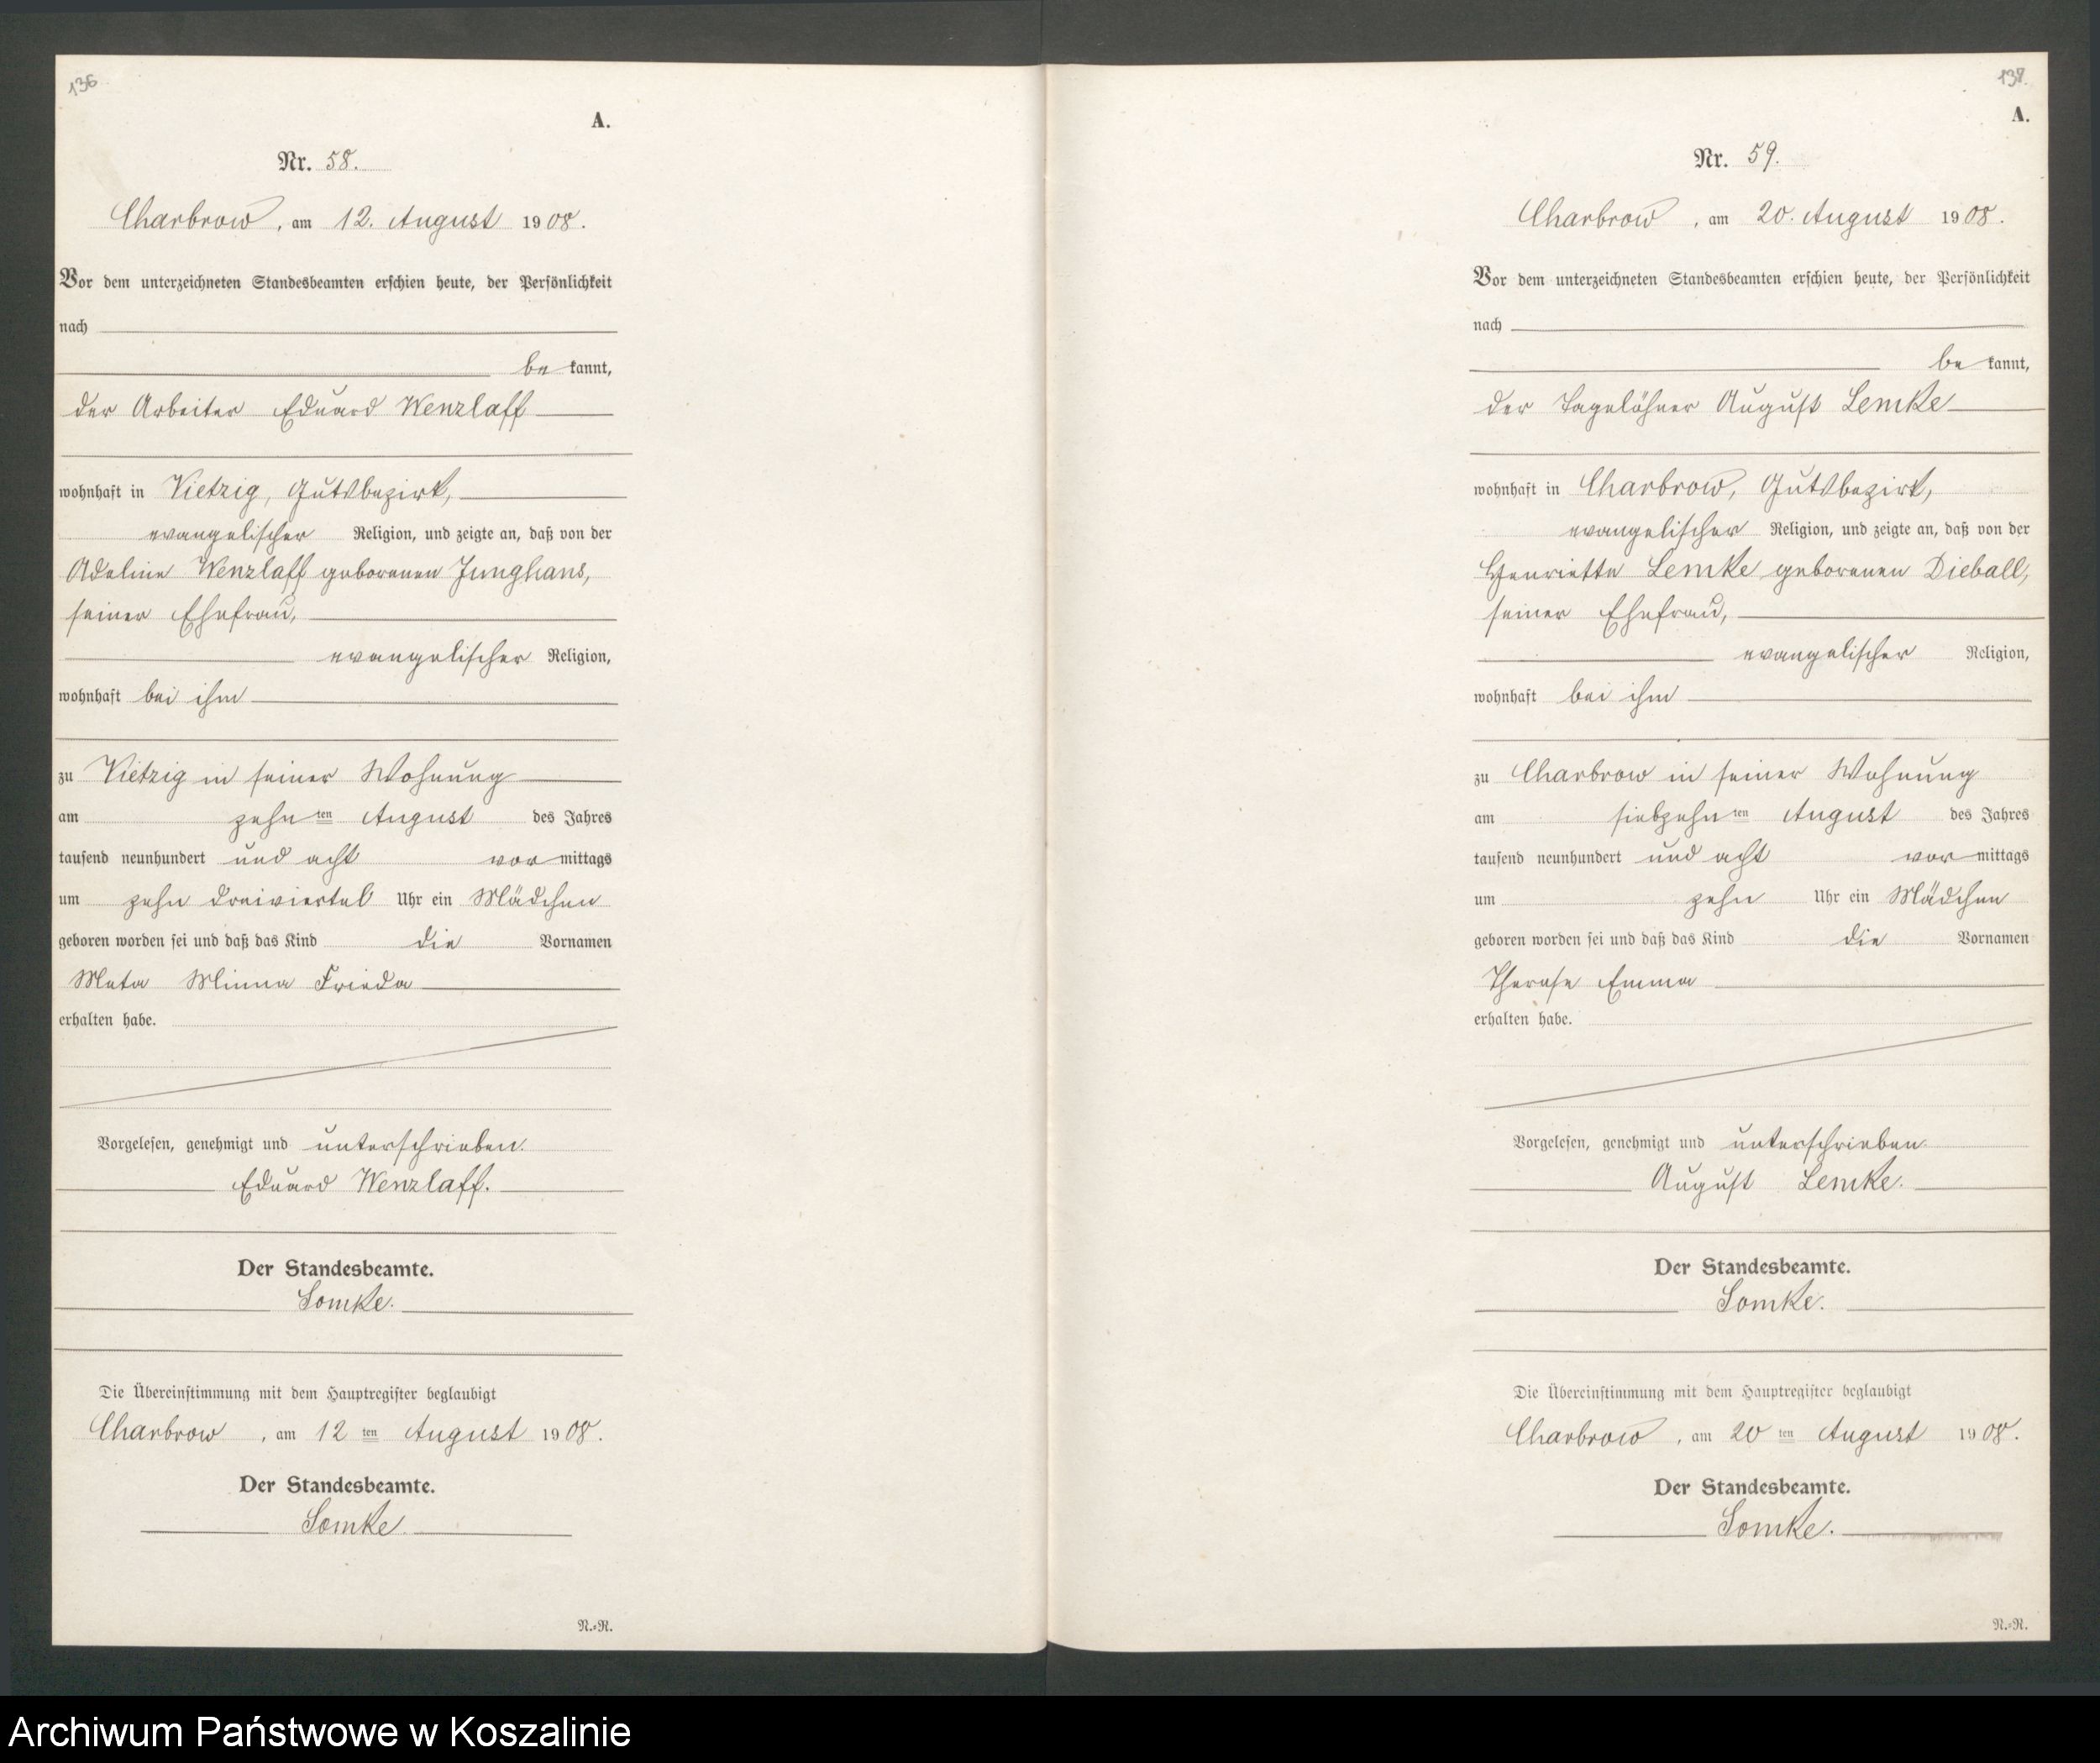 136
A.
Nr. 58.
Charbrow, am 12. August 1908.
Vor dem unterzeichneten Standesbeamten erschien heute, der Persönlichkeit
nach
be kannt,
der Arbeiter Eduard Wenzlaff
wohnhaft in Vietzig, Gutsbezirk,
evangelischer Religion, und zeigte an, daß von der
Adeline Wenzlaff geborenen Junghans,
seiner Ehefrau,
evangelischer Religion,
wohnhaft bei ihm
zu Vietzig in seiner Wohnung
am zehn ten August des Jahres
tausend neunhundert und acht vor mittags
um zehn dreiviertel Uhr ein Mädchen
geboren worden sei und daß das Kind die Vornamen
Meta Minna Frieda
erhalten habe.
Vorgelesen, genehmigt und unterschrieben.
Eduard Wenzlaff.
Der Standesbeamte.
Lomke.
Die Übereinstimmung mit dem Hauptregister beglaubigt
Charbrow, am 12 ten August 1908.
Der Standesbeamte.
Lomke.
N.=R.
137.
A.
Nr. 59.
Charbrow, am 20. August 1908.
Vor dem unterzeichneten Standesbeamten erschien heute, der Persönlichkeit
nach
be kannt,
der Tagelöhner August Lemke
wohnhaft in Charbrow, Gutsbezirk,
evangelischer Religion, und zeigte an, daß von der
Henriette Lemke geborenen Dieball,
seiner Ehefrau,
evangelischer Religion,
wohnhaft bei ihm
zu Charbrow in seiner Wohnung
am siebzehn ten August des Jahres
tausend neunhundert und acht vor mittags
um zehn Uhr ein Mädchen
geboren worden sei und daß das Kind die Vornamen
Therese Emma
erhalten habe.
Vorgelesen, genehmigt und unterschrieben.
August Lemke.
Der Standesbeamte.
Lomke.
Die Übereinstimmung mit dem Hauptregister beglaubigt
Charbrow, am 20 ten August 1908.
Der Standesbeamte.
Lomke.
N.=R.
Archiwum Państwowe w Koszalinie